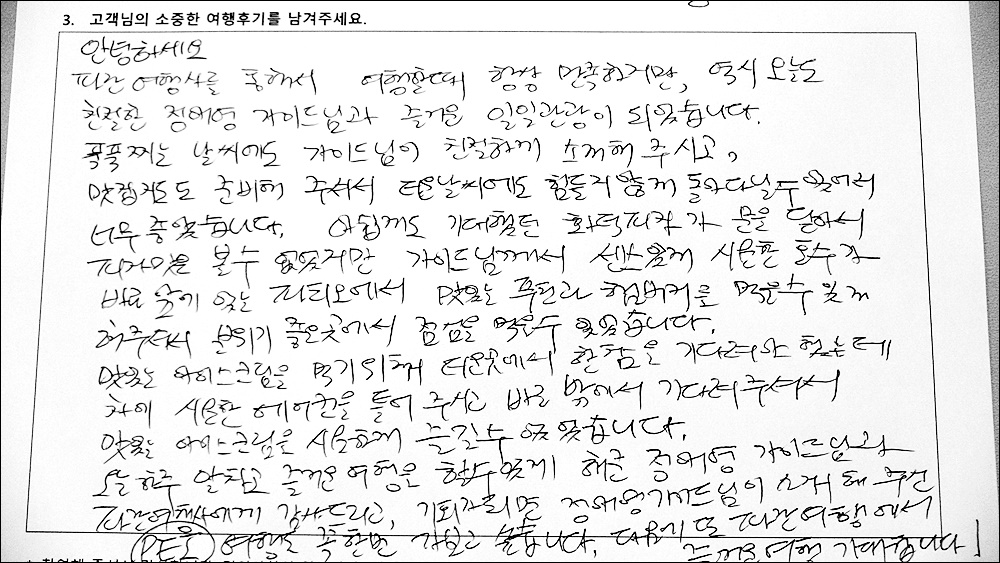 3. 고객님의 소중한 여행후기를 남겨주세요.
안녕하세요
파란여행사를 통해서 여행할때 항상 만족하지만, 역시 오늘도
친절한 정애영 가이드님과 즐거운 일일관광이 되었습니다.
푹푹찌는 날씨에도 가이드님이 친절하게 소개해 주시고,
맛집지도도 준비해 주셔서 더운날씨에도 힘들지않게 돌아다닐수 있어서
너무 좋았습니다. 아쉽게도 기대했던 화덕피자가 문을 닫아서
피자맛을 볼수 없었지만 가이드님께서 센스있게 시원한 호수가
바로 앞에 있는 파티오에서 맛있는 푸틴과 햄버거를 먹을수 있게
해주셔서 분위기 좋은곳에서 점심을 먹을수 있었습니다.
맛있는 아이스크림을 먹기위해 더운곳에서 한참을 기다려야 했는데
차에 시원한 에어컨을 틀어 주시고 바로 밖에서 기다려주셔서
맛있는 아이스크림을 시원하게 즐길수 있었습니다.
오늘 하루 알차고 즐거운여행을 할수있게 해준 정애영 가이드님과
파란여행사에게 감사드리고, 기회가되면 정애영가이드님이 소개해 주신
PEI 여행도 꼭한번 가보고 싶습니다. 다음에 또 파란여행에서
즐거운여행 기대합니다!